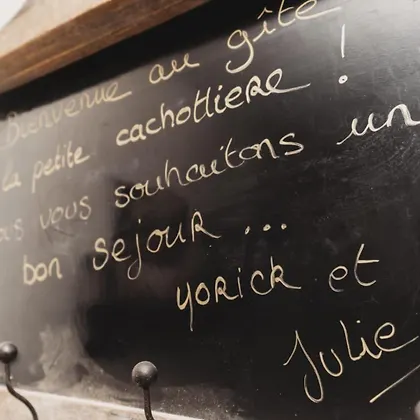 Bienvenue au gîte
la petite cachottiere !
us vous souhaitons un
bon sejour ...
yorick et
Julie